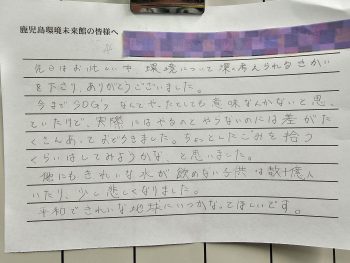 鹿児島環境未来館の皆様へ
先日はお忙しい中、環境について深く考えられるきかい
を下さり、ありがとうございました。
今までSDGsなんてやったとしても意味なんかないと思っ
ていたけど、実際にはやるのとやらないのには差がた
くさんあっておどろきました。ちょっとしたごみを拾う
くらいはしてみようかな、と思いました。
他にもきれいな水が飲めない子供は数十億人
いたり、少し悲しくなりました。
平和できれいな地球にいつかなってほしいです。